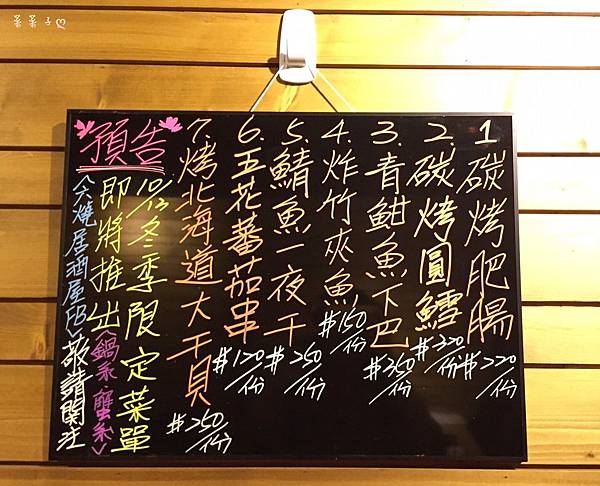 菜菜子♡
1.碳烤肥腸 #220/份
2.碳烤圓鱈 #320/份
3.青魽魚下巴 #350/份
4.炸竹夾魚 #150/份
5.鯖魚一夜干 #250/份
6.五花蕃茄串 #120/份
7.烤北海道大干貝 #250/份
預告
10/13冬季限定菜單
即將推出<鍋系 蟹系>
燒居酒屋FB>敬請関注